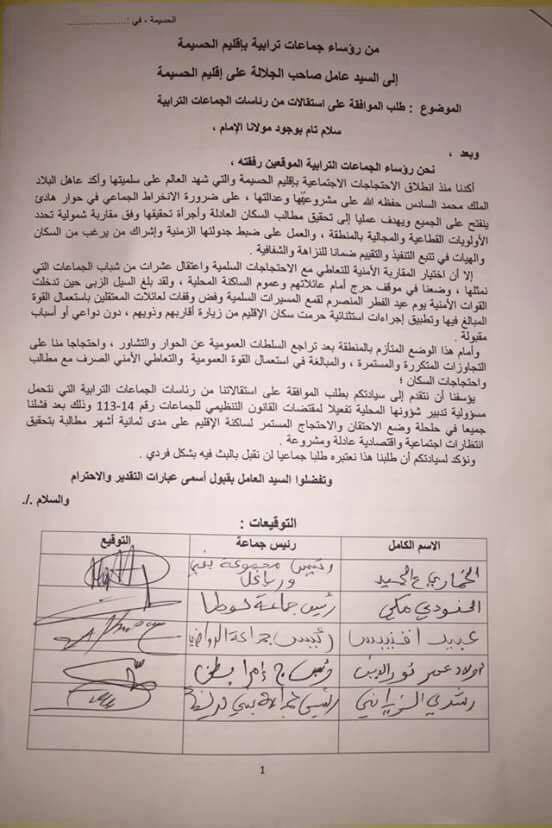 الحسيمة ، في : ....................
من رؤساء جماعات ترابية بإقليم الحسيمة
إلى السيد عامل صاحب الجلالة على إقليم الحسيمة
الموضوع : طلب الموافقة على استقالات من رئاسات الجماعات الترابية
سلام تام بوجود مولانا الإمام ،
وبعد ،
نحن رؤساء الجماعات الترابية الموقعين رفقته ،
أكدنا منذ انطلاق الاحتجاجات الاجتماعية بإقليم الحسيمة والتي شهد العالم على سلميتها وأكد عاهل البلاد
الملك محمد السادس حفظه الله على مشروعيتها وعدالتها ، على ضرورة الانخراط الجماعي في حوار هادئ
ينفتح على الجميع ويهدف عمليا إلى تحقيق مطالب السكان العادلة وأجرأة تحقيقها وفق مقاربة شمولية تحدد
الأولويات القطاعية والمجالية بالمنطقة ، والعمل على ضبط جدولتها الزمنية وإشراك من يرغب من السكان
والهيات في تتبع التنفيذ والتقييم ضمانا للنزاهة والشفافية .
إلا أن اختيار المقاربة الأمنية للتعاطي مع الاحتجاجات السلمية واعتقال عشرات من شباب الجماعات التي
نمثلها ، وضعنا في موقف حرج أمام عائلاتهم وعموم الساكنة المحلية ، ولقد بلغ السيل الزبى حين تدخلت
القوات الأمنية يوم عيد الفطر المنصرم لقمع المسيرات السلمية وفض وقفات لعائلات المعتقلين باستعمال القوة
المبالغ فيها وتطبيق إجراءات استثنائية حرمت سكان الإقليم من زيارة أقاربهم وذويهم ، دون دواعي أو أسباب
مقبولة .
وأمام هذا الوضع المتأزم بالمنطقة بعد تراجع السلطات العمومية عن الحوار والتشاور ، واحتجاجا منا على
التجاوزات المتكررة والمستمرة ، والمبالغة في استعمال القوة العمومية والتعاطي الأمني الصرف مع مطالب
واحتجاجات السكان ؛
يؤسفنا أن نتقدم إلى سيادتكم بطلب الموافقة على استقالاتنا من رئاسات الجماعات الترابية التي نتحمل
مسؤولية تدبير شؤونها المحلية تفعيلا لمقتضات القانون التنظيمي للجماعات رقم 14-113 وذلك بعد فشلنا
جميعا في حلحلة وضع الاحتقان والاحتجاج المستمر لساكنة الإقليم على مدى ثمانية أشهر مطالبة بتحقيق
انتظارات اجتماعية واقتصادية عادلة ومشروعة .
ونؤكد لسيادتكم أن طلبنا هذا نعتبره طلبا جماعيا لن نقبل بالبث فيه بشكل فردي .
وتفضلوا السيد العامل بقبول أسمى عبارات التقدير والاحترام
والسلام ./.
التوقيعات :
الاسم الكامل رئيس جماعة التوقيع
رئيس مجموعة بني
ورياغل
الحنودي مكي رئيس جماعة لوطا
رئيس جماعة الرواضي
اولاد عمر نور الدين رئيس ج إمرابطن
رشدي رئيس جماعة بني
1